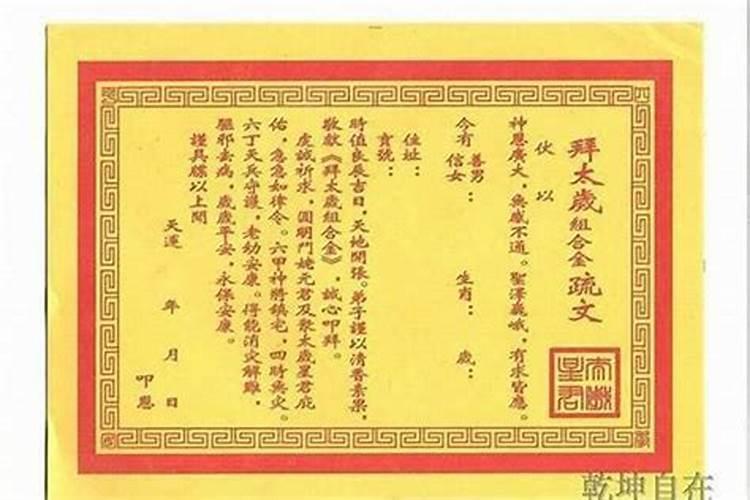 拜太歲組合金疏文
伏以
神恩廣大，無感不通。聖澤巍峨，有求皆應。
今有善男信女：　生肖：　歲：
住址：
寶號：
時值良辰吉日，天地開張。弟子謹以清香素果，
敬獻《拜太歲組合金》，誠心叩拜。
虔誠祈求，圓明鬥姥元君及眾太歲星君庇
佑，急急如律令。六甲神將鎮宅，四時無災。
六丁天兵守護，老幼安康。得能消災解難，
驅邪去病，歲歲平安，永保安康。
謹具牒以上聞
天運　年　月　日
叩恩
太歲星君
乾坤自在